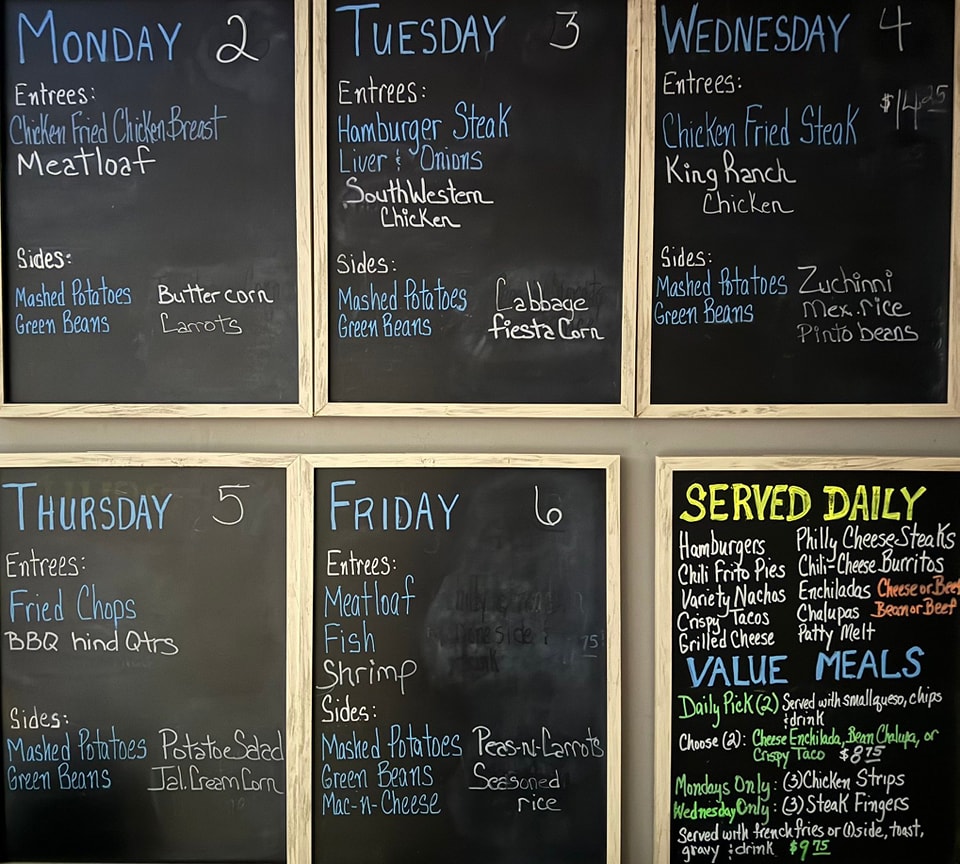 MONDAY 2
Entrees:
Chicken Fried Chicken Breast
Meatloaf
Sides:
Mashed Potatoes
Green Beans
Butter corn
Carrots
TUESDAY 3
Entrees:
Hamburger Steak
Liver & Onions
SouthWestern
Chicken
Sides:
Mashed Potatoes
Green Beans
Cabbage
fiesta Corn
WEDNESDAY 4
Entrees:
$14.25
Chicken Fried Steak
King Ranch
Chicken
Sides:
Mashed Potatoes
Green Beans
Zuchinni
Mex. rice
Pinto beans
THURSDAY 5
Entrees:
Fried Chops
BBQ hind Qtrs
Sides:
Mashed Potatoes
Green Beans
Potatoe Salad
Jal. Cream Corn
FRIDAY 6
Entrees:
Meatloaf
Fish
Shrimp
Sides:
Mashed Potatoes
Green Beans
Mac-n-Cheese
Peas-n-Carrots
Seasoned
rice
SERVED DAILY
Hamburgers
Chili Frito Pies
Variety Nachos
Crispy Tacos
Grilled Cheese
Philly Cheese-Steaks
Chili-Cheese Burritos
Enchiladas Cheese or Beef
Chalupas Bean or Beef
Patty Melt
VALUE MEALS
Daily Pick (2) Served with small queso, chips
& drink
Choose (2): Cheese Enchilada, Bean Chalupa, or
Crispy Taco $8.75
Mondays Only: (3) Chicken Strips
Wednesday Only: (3) Steak Fingers
Served with french fries or (1) side, toast,
gravy & drink $9.75